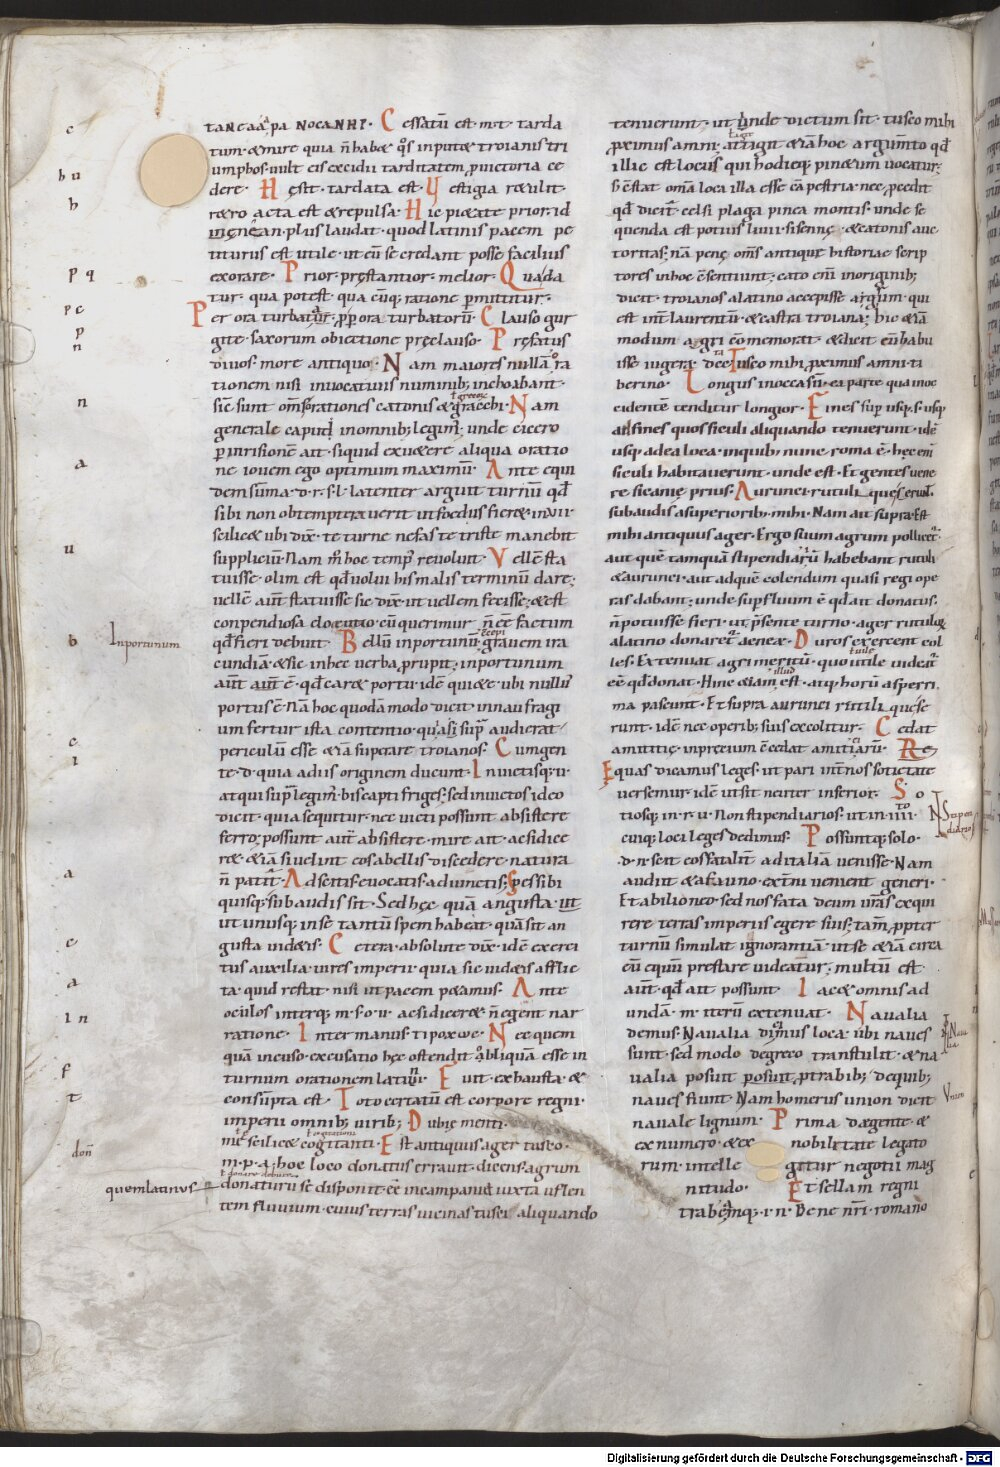 tum. & mire quia n̄ habet q̊s inputet troianis tri
umphos. uult eis excidii tarditatem, p uictoria ce
dere. Hęsit. tardata est. Vestigia retulit.
retro acta est & repulsa. Hic pietate prior. id
in ęnean. plus laudat. quod latinis pacem pe
titurus est utile. ut eū se credant posse facilius
exorare. Prior. pręstantior. melior. Quada
tur. qua potest. qua cūq; ratione ꝑmittitur.
Per ora turbatur. ꝓp ora turbatorū. Clauso gur
gite. saxorum obiectione pręclauso. Prefatus
diuos. more antiquo. Nam maiores nullā ora
tionem nisi inuocatiuis numinib; inchoabant.
sic̄ sunt om̄s orationes catonis & gracchi. Nam
generale caput inomnib; legim̄. unde cicero
ꝑ inrisionem ait. siquid exuetere aliqua oratio
ne iouem ego optimum maximū. Ante equi
dem sūma. d. r. s. l. latenter arguit turnū qd̄
sibi non obtemperauerit ut foedus fieret in xii
scilicet ubi dix̄. te turne nefas te triste manebit
suppliciū. Nam m̄ hoc temp̄ reuoluit. Vellē sta
tuisse. olim est qd̄ uolui his malis terminū dare.
uellē aut̄ statuisse sic dix̄. ut uellem fecisse. & est
conpendiosa elocutio cū querimur n̄ ēē factum
qd̄ fieri debuit. Bellū inportunū. grauem ira
Inportunum
cundiā. & sic in hec uerba prupit. inportunum
aut̄ aut̄ ē. qd̄ caret portu. idē quiete. ubi nullus
portus ē. Nā hoc quodā modo dicit in naufragi
um fertur ista contentio. quasi sup̄ audierat
periculū esse & iā superare troianos. Cum gen
te. d. quia a diis originem ducunt. Inuictisq; u.
atqui sup̄ legim̄. bis capti friges. sed inuictos ideo
dicit. quia sequitur. nec uicti possunt absistere
ferro. possunt aut̄ absistere. mire ait. ac si dice
ret. & iā si uelint eos a bellis discedere. natura
n̄ patit̄. Ad scitis. euocatis. adiunctis. spes sibi
quisq; subaudis sit. Sed hęc quā angusta. ut
ut unusq; in se tantū spem habeat. quā sit an
gusta uidetis. Cetera. absolute dix̄. idē exerci
tus auxilia. uires imperii. quia sic uidetis afflic
ta. quid restat. nisi ut pacem petamus. Ante
oculos interq; m. s. o. u. ac si diceret. n̄ egent nar
ratione. Inter manus. ti pox we. Nec quem
quā incuso. excusatio hęc ostendit obliquā esse in
turnum orationem latini. Fuit. exhausta &
consūpta est. Toto certatū est corpore regni.
imperii omnib; uirib; Dubię menti.
m̄c scilicet cogitanti. Est antiquus ager tusco.
m. p. a. hoc loco donatus errauit. dicens agrum
quem latinus
donaturū se disponit. eē in campania iuxta ufen
tem fluuium. cuius terras uicinas tusci aliquando
tenuerunt. ut unde dictum sit. tusco mihi
proximus amni. attigit & iā hoc argum̄to qd̄
illic est locus qui hodieq; pinetum uocatur.
s; cōstat om̄a loca illa esse cāpestria. nec ꝓcedit
qd̄ dicit̄. celsi plaga pinea montis. unde se
quenda est potius liuii. sisennę. & catonis auc
toritas. nā pene om̄s antiquę historiae scrip
tores in hoc cōsentiunt. cato eni inoriginib;
dicit. troianos a latino accepisse agrum. qui
est int̄ laurentū. & castra troiana. hic & iā
modum agri cōmemorat. & dicit eū habu
isse iugera dcc. Tusco mihi, proximus amni. ti
berino. Longus in occasū. ea parte qua in oc
cidentē tenditur longior. Fines sup̄ usq; s. usq
ad fines quos siculi aliquando tenuerunt. idē
usq; ad ea loca. inquib; nunc roma ē. hęc eni
siculi habitauerunt. unde est. Et gentes uene
re sicanię prius. Aurunci rutuli. quęserunt.
subaudis a superiorib; mihi. Nam ait supra. Est
mihi antiquus ager. Ergo suum agrum pollicet̄.
aut quē tamquā stipendiariū habebant rutuli
& aurunci. aut ad quē colendum quasi regi ope
ras dabant. unde supfluum ē qd̄ ait donatus.
n̄ potuisse fieri ut p̄sente turno. ager rutulorū
a latino donaret̄ aeneae. Duros exercent col
les. Extenuat agri meritū. quo utile uideat̄
eē qd̄ donat. Hinc & iam illud est. atq; horū asperri
ma pascunt. Et supra aurunci rutuli quę se
runt. idē nec operib; suis excolitur. Cedat
amititię. in precium cēdat amitiarū. Re
Equas dicamus leges. ut pari int̄ nos sotietate
uersemur. idē ut sit neuter inferior. So
tiosq; in. r. u. Non stipendiarios. ut in iiii.
Stipen
diarios
cuiq; loci leges dedimus. Possuntq; solo.
d. n. scit eos fatalit̄ ad italiā uenisse. Nam
audiit & a fauno. ext̄ni uenient generi.
Et ab ilioneo. sed nos fata deum ur̄as exqui
rere terras imperiis egere suis. tam̄, propter
turnū simulat ignorantiā. ut se & iā circa
eū equū prestare uideatur. multū est
aut̄. qd̄ ait possunt. Iacet omnis ad
undā. m. iterū extenuat. Naualia
demus. Naualia dicimus loca. ubi naues
sunt. sed modo de greco transtulit. & na
ualia posuit posuit, p trabib; de quib;
naues fiunt. Nam homerus union dicit
nauale lignum. Prima de gente. &
ex numero. & ex nobilitate legato
rum. intelle gitur negotii mag
nitudo. Et sellam regni
trabeamq; i. n. Bene nr̄i. romano
Digitalisierung gefördert durch die Deutsche Forschungsgemeinschaft - DFG